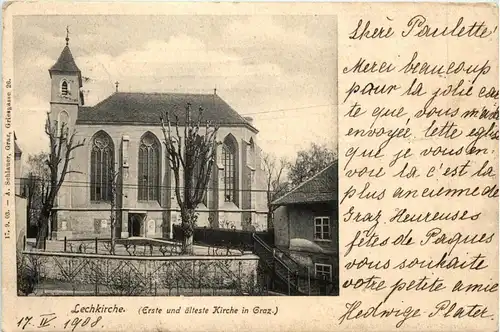 Chère Paulette!
Merci beaucoup
pour la jolie car
te que vous m'a
envoyée cette egli
que je vous en
voi la c'est la
plus ancienne de
Graz Heureuses
fêtes de Paques
vous souhaite
votre petite amie
Hedwige Plater.
Lechkirche. (Erste und älteste Kirche in Graz.)
17. IV. 1908.
17. 9. 03. — J. Schlauer, Graz, Griesgasse 20.